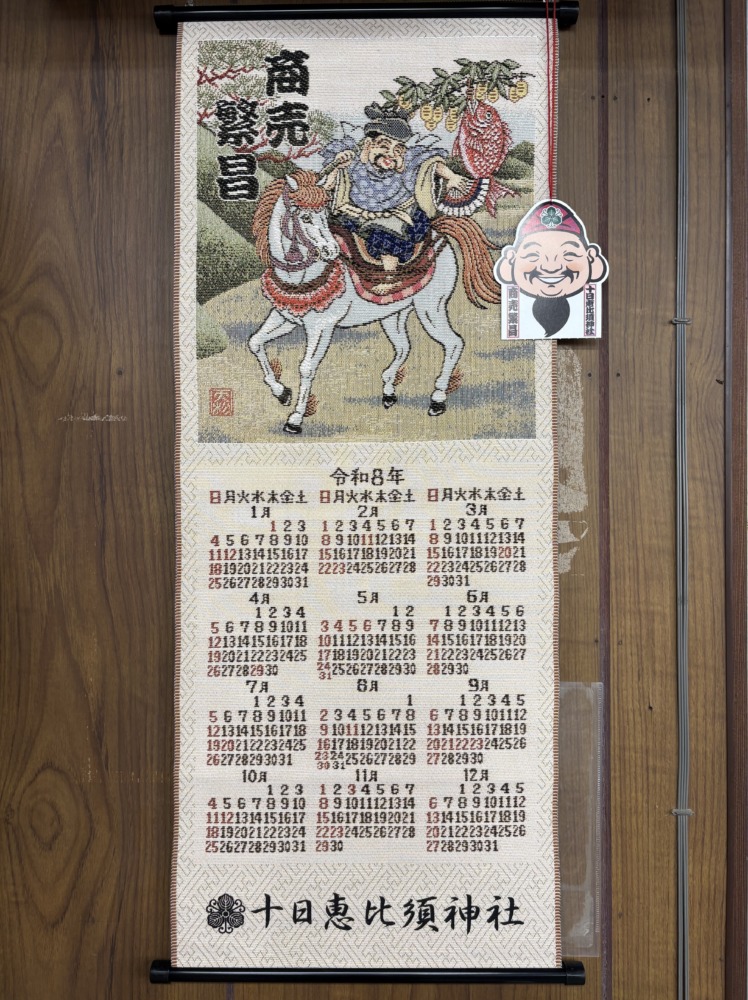 商売
繁昌
十日恵比須神社
商売繁昌
令和8年
日月火水木金土
1月
1 2 3
4 5 6 7 8 9 10
11 12 13 14 15 16 17
18 19 20 21 22 23 24
25 26 27 28 29 30 31
日月火水木金土
2月
1 2 3 4 5 6 7
8 9 10 11 12 13 14
15 16 17 18 19 20 21
22 23 24 25 26 27 28
日月火水木金土
3月
1 2 3 4 5 6 7
8 9 10 11 12 13 14
15 16 17 18 19 20 21
22 23 24 25 26 27 28
29 30 31
4月
1 2 3 4
5 6 7 8 9 10 11
12 13 14 15 16 17 18
19 20 21 22 23 24 25
26 27 28 29 30
5月
1 2
3 4 5 6 7 8 9
10 11 12 13 14 15 16
17 18 19 20 21 22 23
24 25 26 27 28 29 30
31
6月
1 2 3 4 5 6
7 8 9 10 11 12 13
14 15 16 17 18 19 20
21 22 23 24 25 26 27
28 29 30
7月
1 2 3 4
5 6 7 8 9 10 11
12 13 14 15 16 17 18
19 20 21 22 23 24 25
26 27 28 29 30 31
8月
1
2 3 4 5 6 7 8
9 10 11 12 13 14 15
16 17 18 19 20 21 22
23 24 25 26 27 28 29
30 31
9月
1 2 3 4 5
6 7 8 9 10 11 12
13 14 15 16 17 18 19
20 21 22 23 24 25 26
27 28 29 30
10月
1 2 3
4 5 6 7 8 9 10
11 12 13 14 15 16 17
18 19 20 21 22 23 24
25 26 27 28 29 30 31
11月
1 2 3 4 5 6 7
8 9 10 11 12 13 14
15 16 17 18 19 20 21
22 23 24 25 26 27 28
29 30
12月
1 2 3 4 5
6 7 8 9 10 11 12
13 14 15 16 17 18 19
20 21 22 23 24 25 26
27 28 29 30 31
十日恵比須神社